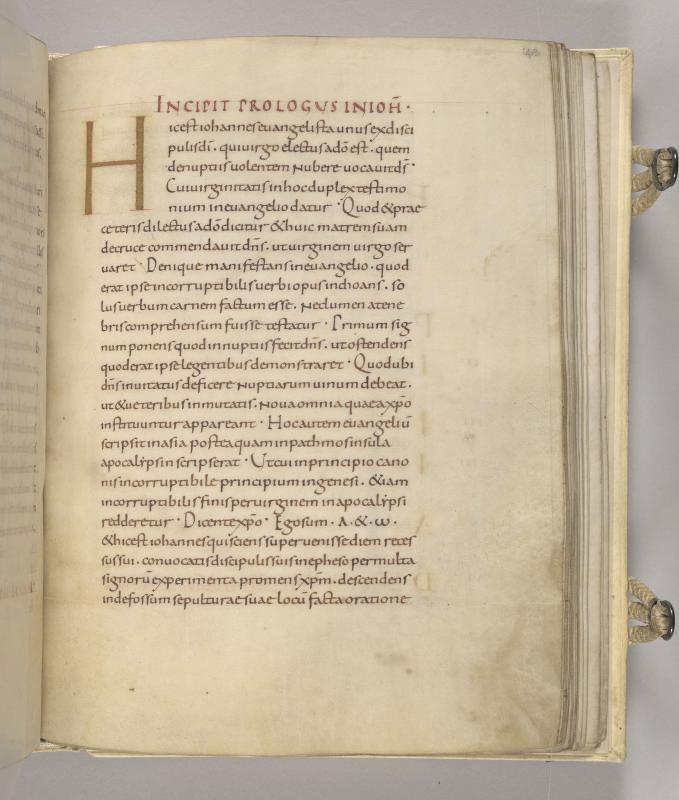 148
INCIPIT PROLOGVS INIOH̅ ·
Hic est iohannes euangelista unus ex disci
pulis dī. qui uirgo electus adō est. quem
denuptiis uolentem Nubere uocauit ds̄ ·
Cui uirginitatis in hoc duplex testimo
nium in euangelio datur · Quod & prae
ceteris dilectus adō dicitur & huic matrem suam
decruce commendauit dn̄s. ut uirginem uirgo ser
uaret · Denique manifestans in euangelio. quod
erat ipse incorruptibilis uerbi opus inchoans. so
lus uerbum carnem factum esse. Nec lumen atene
bris comprehensum fuisse testatur · Primum sig
num ponens quod in nuptiis fecit dn̄s. ut ostendens
quod erat ipse legentibus demonstraret · Quod ubi
dn̄s inuitatus deficere Nuptiarum uinum debeat.
ut & ueteribus inmutatis. Noua omnia quae axp̄o
instituuntur appareant · Hoc autem euangeliū
scripsit in asia postea quam in pathmos insula
apocalypsin scripserat · Ut cui in principio cano
nis incorruptibile principium in genesi. &iam
incorruptibilis finis per uirginem in apocalypsi
redderetur · Dicente xp̄o · Ego sum · A · & · ω ·
& hic est iohannes qui sciens superuenisse diem reces
sus sui. conuocatis discipulis suis in epheso per multa
signorū experimenta promens xp̄m. descendens
in defossum sepulturae suae locū facta oratione